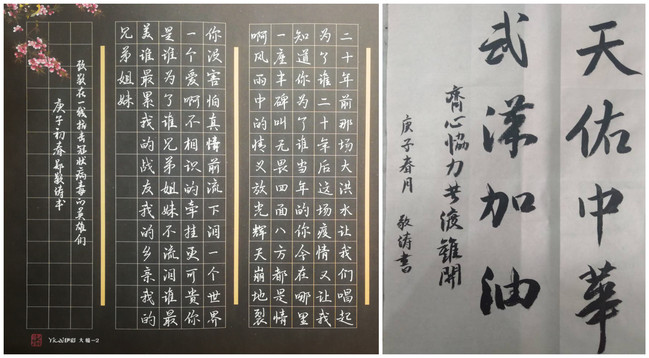 二十年前那场大洪水让我们唱起
为了谁二十年后这场疫情又让我
知道你为了谁当年的你今在哪里
一座丰碑叫无畏四面八方都是情
啊风雨中的情义放光辉天崩地裂
你没害怕真情前流下泪一个世界
一个爱啊不相识的牵挂更可贵你
是谁为了谁兄弟姐妹不流泪谁最
美谁最累我的战友我的乡亲我的
兄弟姐妹
致敬在一线抗击冠状病毒的英雄们
庚子初春 敬涛书
Yicai伊彩 大福-2
天佑中華
武漢加油
齊心協力共渡難關
庚子春月 敬涛书